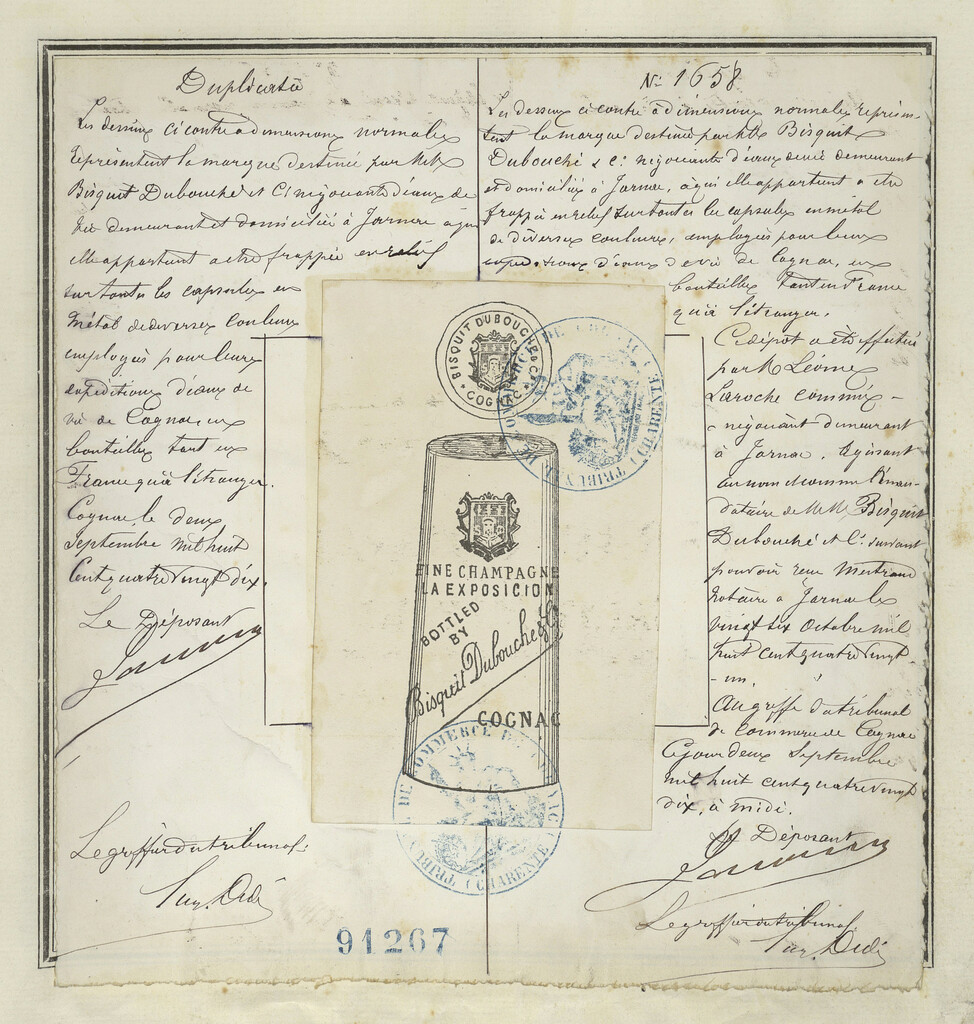 Duplicata
Les dessins ci contre à dimensions normales
représentent la marque destinée par MM
Bisquit Dubouché et Cie négociants d'eaux de
vie demeurant et domiciliés à Jarnac à qui
elle appartient a être frappée en relief
sur toutes les capsules en
métal de diverses couleurs
employées pour leurs
expéditions d'eaux de
vie de Cognac, en
bouteilles tant en
France qu'à l'étranger.
Cognac, le deux
septembre mil huit
cent quatre vingt dix.
Le Déposant
Le greffier du tribunal.
No 1658
Les dessins ci contre à dimensions normales représen-
tent la marque destinée par MM Bisquit
Dubouché & Cie négociants d'eaux de vie demeurant
et domiciliés à Jarnac, à qui elle appartient a être
frappée en relief sur toutes les capsules en métal
de diverses couleurs, employées pour leurs
expéditions d'eaux de vie de Cognac, en
bouteilles tant en France
qu'à l'étranger.
Ce dépôt a été effectué
par M Léonce
Laroche commis-
négociant demeurant
à Jarnac, agissant
au nom et comme man-
dataire de MM Bisquit
Dubouché et Cie suivant
pouvoir reçu
notaire à Jarnac le
vingt six Octobre mil
huit cent quatre vingt-
un.
Au greffe du tribunal
de Commerce de Cognac
Ce jour deux Septembre
mil huit cent quatre vingt
dix, à midi.
Déposant
Le greffier du tribunal.
BISQUIT DUBOUCHÉ & Cie
COGNAC
TRIBUNAL DE COMMERCE DE COGNAC (CHARENTE)
FINE CHAMPAGNE
LA EXPOSICION
BOTTLED
BY
Bisquit Dubouché & Co
COGNAC
TRIBUNAL DE COMMERCE DE COGNAC (CHARENTE)
91267